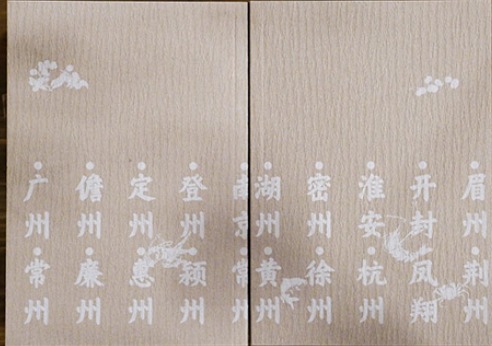 •眉州•荆州
•开封•凤翔
•淮安•杭州
•密州•徐州
•湖州•黄州
•南京•常州
•登州•颍州
•定州•惠州
•儋州•廉州
•广州•常州